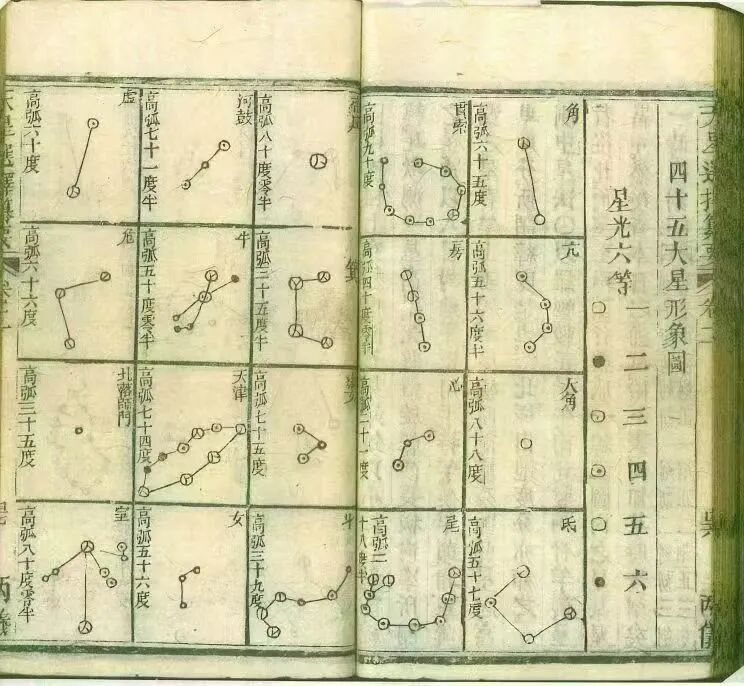 四十五大星形象圖
星光六等
一二三四五六
角
高弧六十五度
亢
高弧五十六度半
大角
高弧八十八度
氐
高弧五十七度
貫索
高弧九十度
房
高弧四十度零半
心
高弧
尾
高弧二十八度半
高弧八十度零半
高弧三十五度半
高弧七十五度
斗
高弧三十九度
河鼓
高弧七十一度半
牛
高弧五十度零半
天津
高弧七十四度
女
高弧五十六度
虛
高弧六十度
危
高弧六十六度
北落師門
高弧三十五度
室
高弧八十度零半